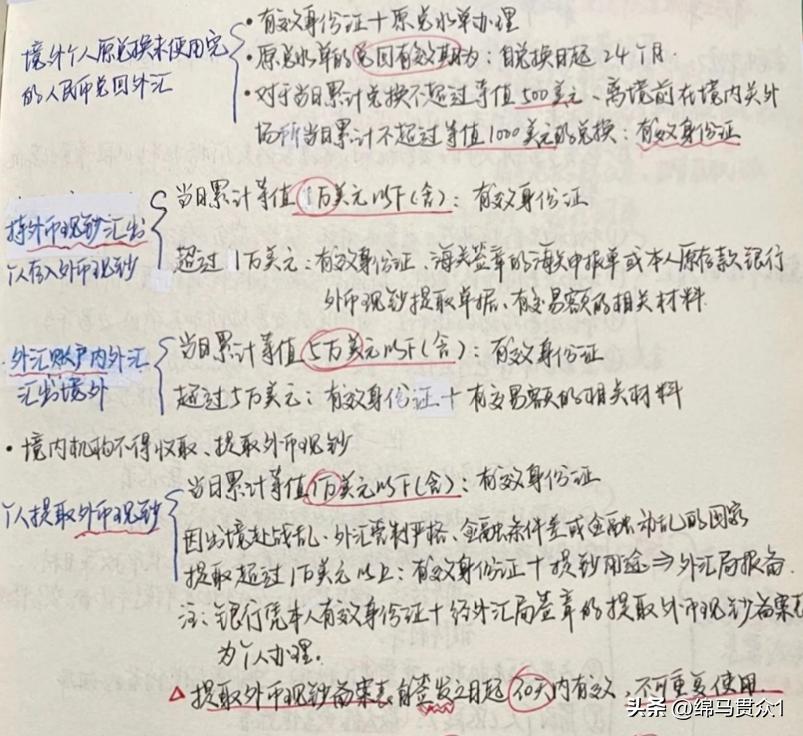 境外个人原兑换未使用完
的人民币兑回外汇
• 有效身份证+原兑水单办理
• 原兑水单的兑回有效期为：自兑换日起24个月.
• 对于当日累计兑换不超过等值500美元、离境前在境内关外
场所当日累计不超过等值1000美元的兑换：有效身份证
持外币现钞汇出
个人存入外币现钞
当日累计等值1万美元以下(含)：有效身份证
超过1万美元：有效身份证、海关签章的海关申报单或本人原存款银行
外币现钞提取单据、有交易额的相关材料
外汇账户内外汇
汇出境外
当日累计等值5万美元以下(含)：有效身份证
超过5万美元：有效身份证+有交易额的相关材料
• 境内机构不得收取、提取外币现钞
个人提取外币现钞
当日累计等值1万美元以下(含)：有效身份证
因出境赴战乱、外汇管制严格、金融条件差或金融动乱的国家
提取超过1万美元以上：有效身份证+提钞用途⇒外汇局报备.
注：银行凭本人有效身份证+经外汇局签章的提取外币现钞备案表
为个人办理.
△ 提取外币现钞备案表自签发之日起30天内有效，不可重复使用.
头条 @绵马贯众1